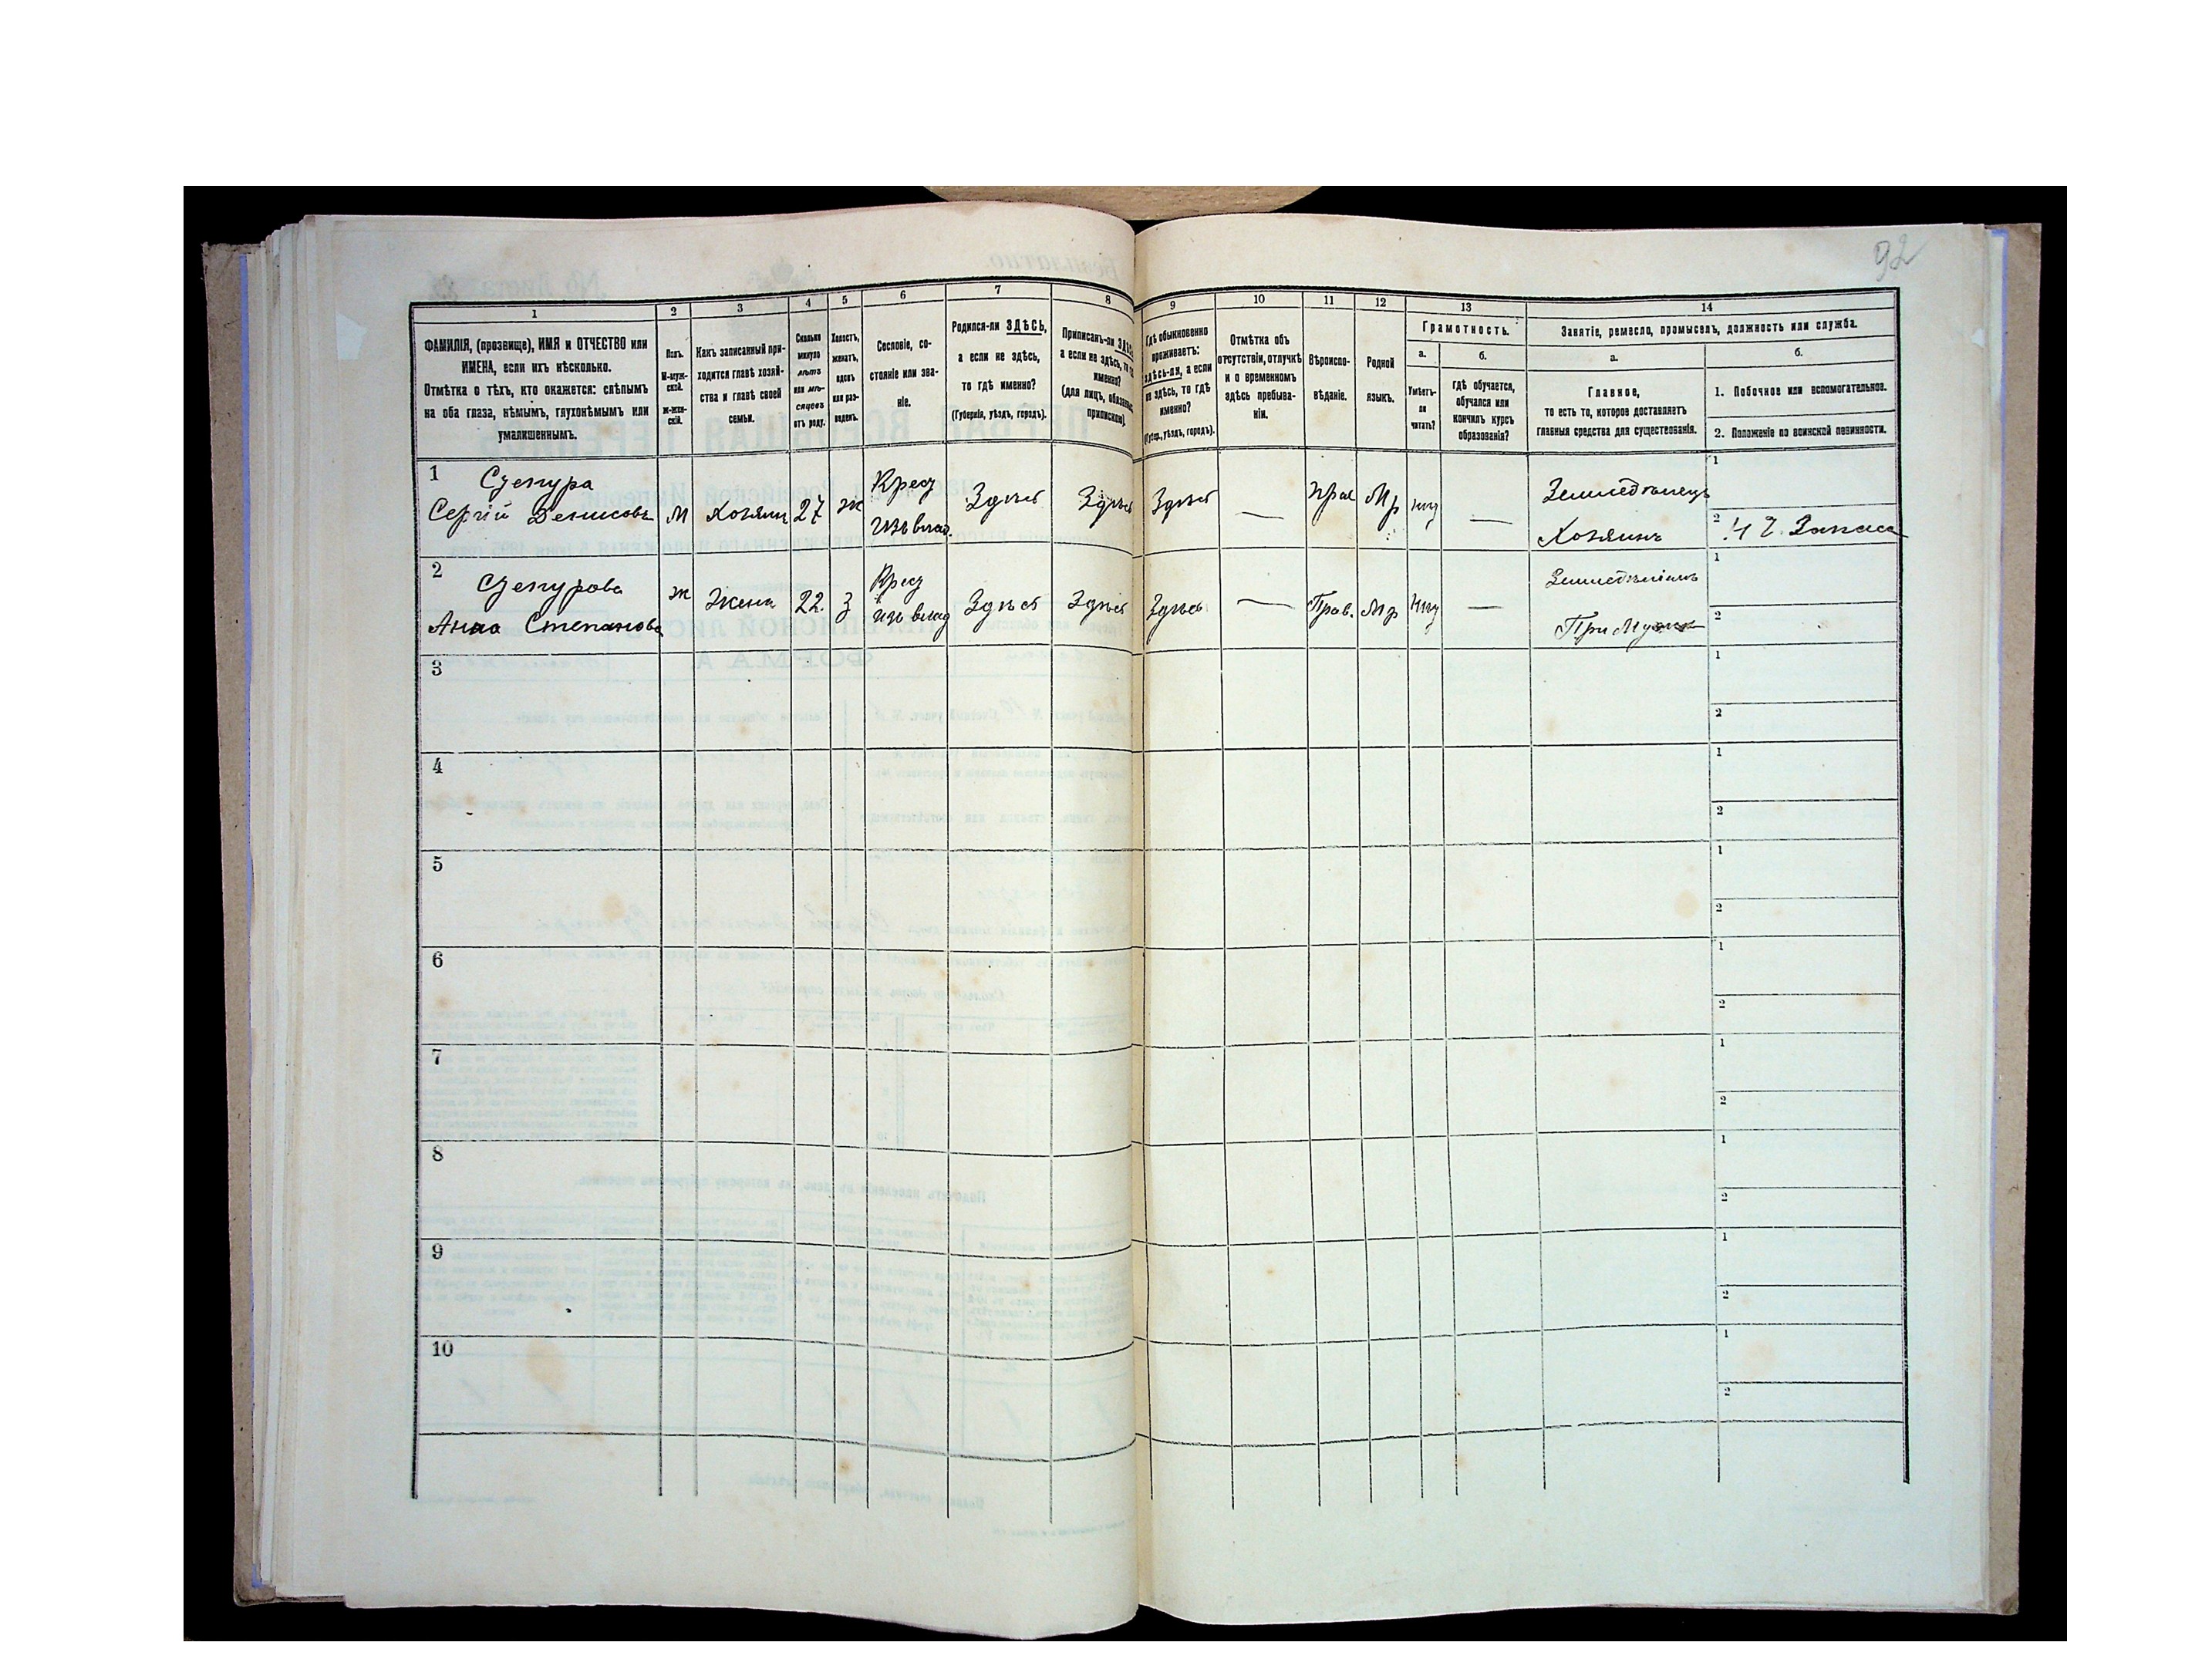 92
1
2
3
4
5
6
7
8
9
10
11
12
13
14
ФАМИЛІЯ, (прозвище), ИМЯ и ОТЧЕСТВО или
ИМЕНА, если ихъ нѣсколько.
Отмѣтка о тѣхъ, кто окажется: слѣпымъ
на оба глаза, нѣмымъ, глухонѣмымъ или
умалишеннымъ.
Полъ.
М-муж-
ской.
Ж-жен-
скій.
Какъ записанный при-
ходится главѣ хозяй-
ства и главѣ своей
семьи.
Сколько
минуло
лѣтъ
или мѣ-
сяцевъ
отъ роду.
Холостъ,
женатъ,
вдовъ
или раз-
веденъ.
Сословіе, со-
стояніе или зва-
ніе.
Родился-ли ЗДѢСЬ,
а если не здѣсь,
то гдѣ именно?
(Губернія, уѣздъ, городъ).
Приписанъ-ли ЗДѢСЬ
а если не здѣсь, то
именно?
(для лицъ,
припиской).
Гдѣ обыкновенно
проживаетъ:
здѣсь-ли, а если
не здѣсь, то гдѣ
именно?
(Губер., уѣздъ, городъ).
Отмѣтка объ
отсутствіи, отлучкѣ
и о временномъ
здѣсь пребыва-
ніи.
Вѣроиспо-
вѣданіе.
Родной
языкъ.
Грамотность.
а.
Умѣетъ-
ли
читать?
б.
гдѣ обучается,
обучался или
кончилъ курсъ
образованія?
Занятіе, ремесло, промыселъ, должность или служба.
а.
Главное,
то есть то, которое доставляетъ
главныя средства для существованія.
б.
1. Побочное или вспомогательное.
2. Положеніе по воинской повинности.
1
Сергій Денисовъ
М
Хозяинъ
27
ж
Крест
изъ влад.
Здѣсь
Здѣсь
Здѣсь
—
Прав
Мр
нѣт
—
Земледѣлецъ
Хозяинъ
1
2
Запаса
2
Анна Степанова
ж
Жена
22.
З
Крест
изъ влад
Здѣсь
Здѣсь
Здѣсь
—
Прав.
Мр
нѣт
—
При Мужѣ
1
2
3
1
2
4
1
2
5
1
2
6
1
2
7
1
2
8
1
2
9
1
2
10
1
2